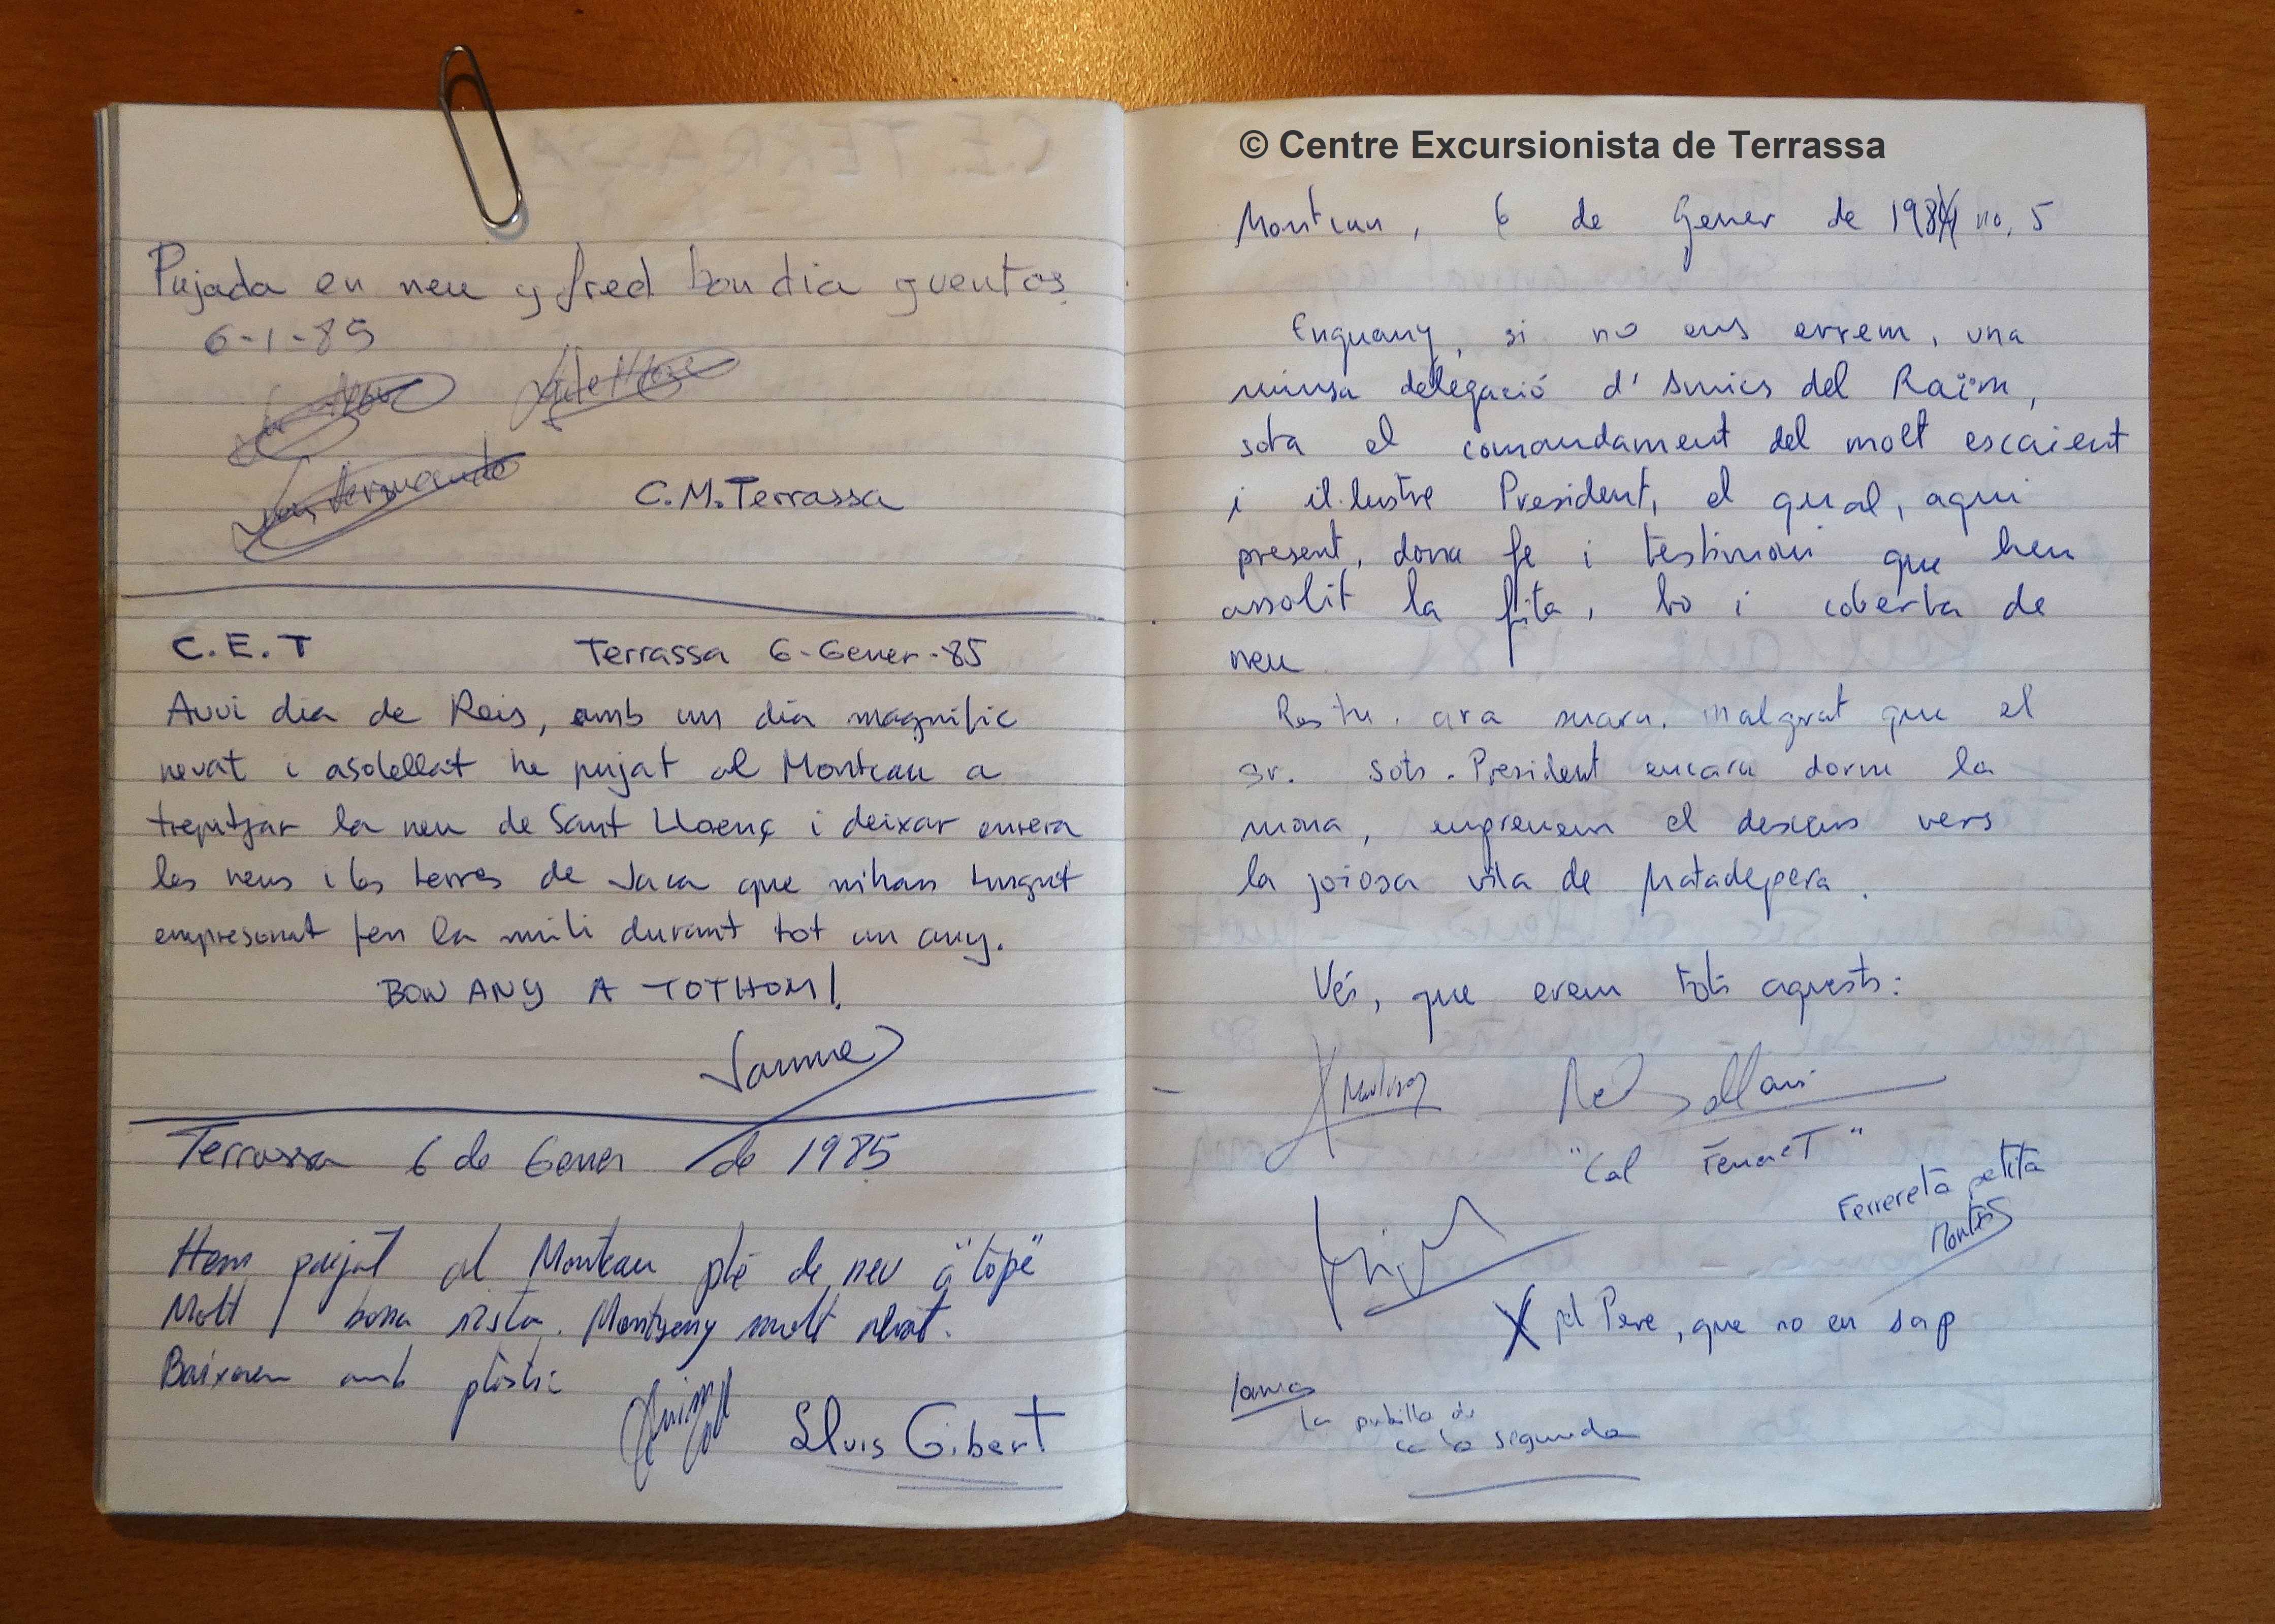 Pujada en neu y fred bon dia y ventos
6-1-85
C.M. Terrassa
C.E.T Terrassa 6-Gener-85
Avui dia de Reis, amb un dia magnific
nevat i asolellat he pujat al Montcau a
trepitjar la neu de Sant Llorenç i deixar enrera
les neus i les terres de Jaca que m'han tingut
empresonat fen la mili durant tot un any.
BON ANY A TOTHOM!
Jaume
Terrassa 6 de Gener de 1985
Hem pujat al Montcau ple de neu a "tope"
Molt bona vista. Montseny molt nevat.
Baixarem amb plàstic
Lluis Gibert
© Centre Excursionista de Terrassa
Montcau, 6 de Gener de 1984 no, 5
Enguany, si no ens errem, una
minsa delegació d'Amics del Raïm,
sota el comandament del molt escaient
i il·lustre President, el qual, aqui
present, dona fe i testimoni que hem
assolit la fita, bo i coberta de
neu
ara mara. malgrat que el
sr. Sots-President encara dorm la
mona, emprenem el descens vers
la joiosa vila de Matadepera.
Vés, que erem tots aquests:
"Cal FerreT"
Ferrereta petita
Montse
X pel Pere, que no en sap
La pubilla de
ca la segunda